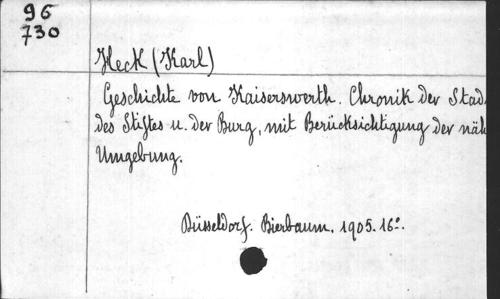 96
730
Heck (Karl)
Geschichte von Kaiserswerth. Chronik der Stad
des Stiftes u. der Burg, mit Berücksichtigung der näh
Umgebung.
Düsseldorf. Bierbaum. 1905. 16°.